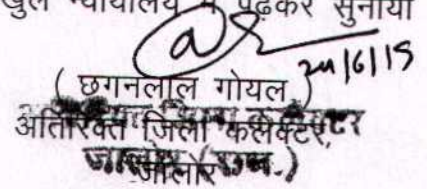 खुले न्यायालय में पढ़कर सुनाया
24/6/15
( छगनलाल गोयल )
अतिरिक्त जिला कलेक्टर,
जालोर